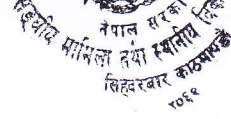 नेपाल सरकार
मामिला तथा स्थानीय
सिंहदरबार काठमाण्डौ
२०६९